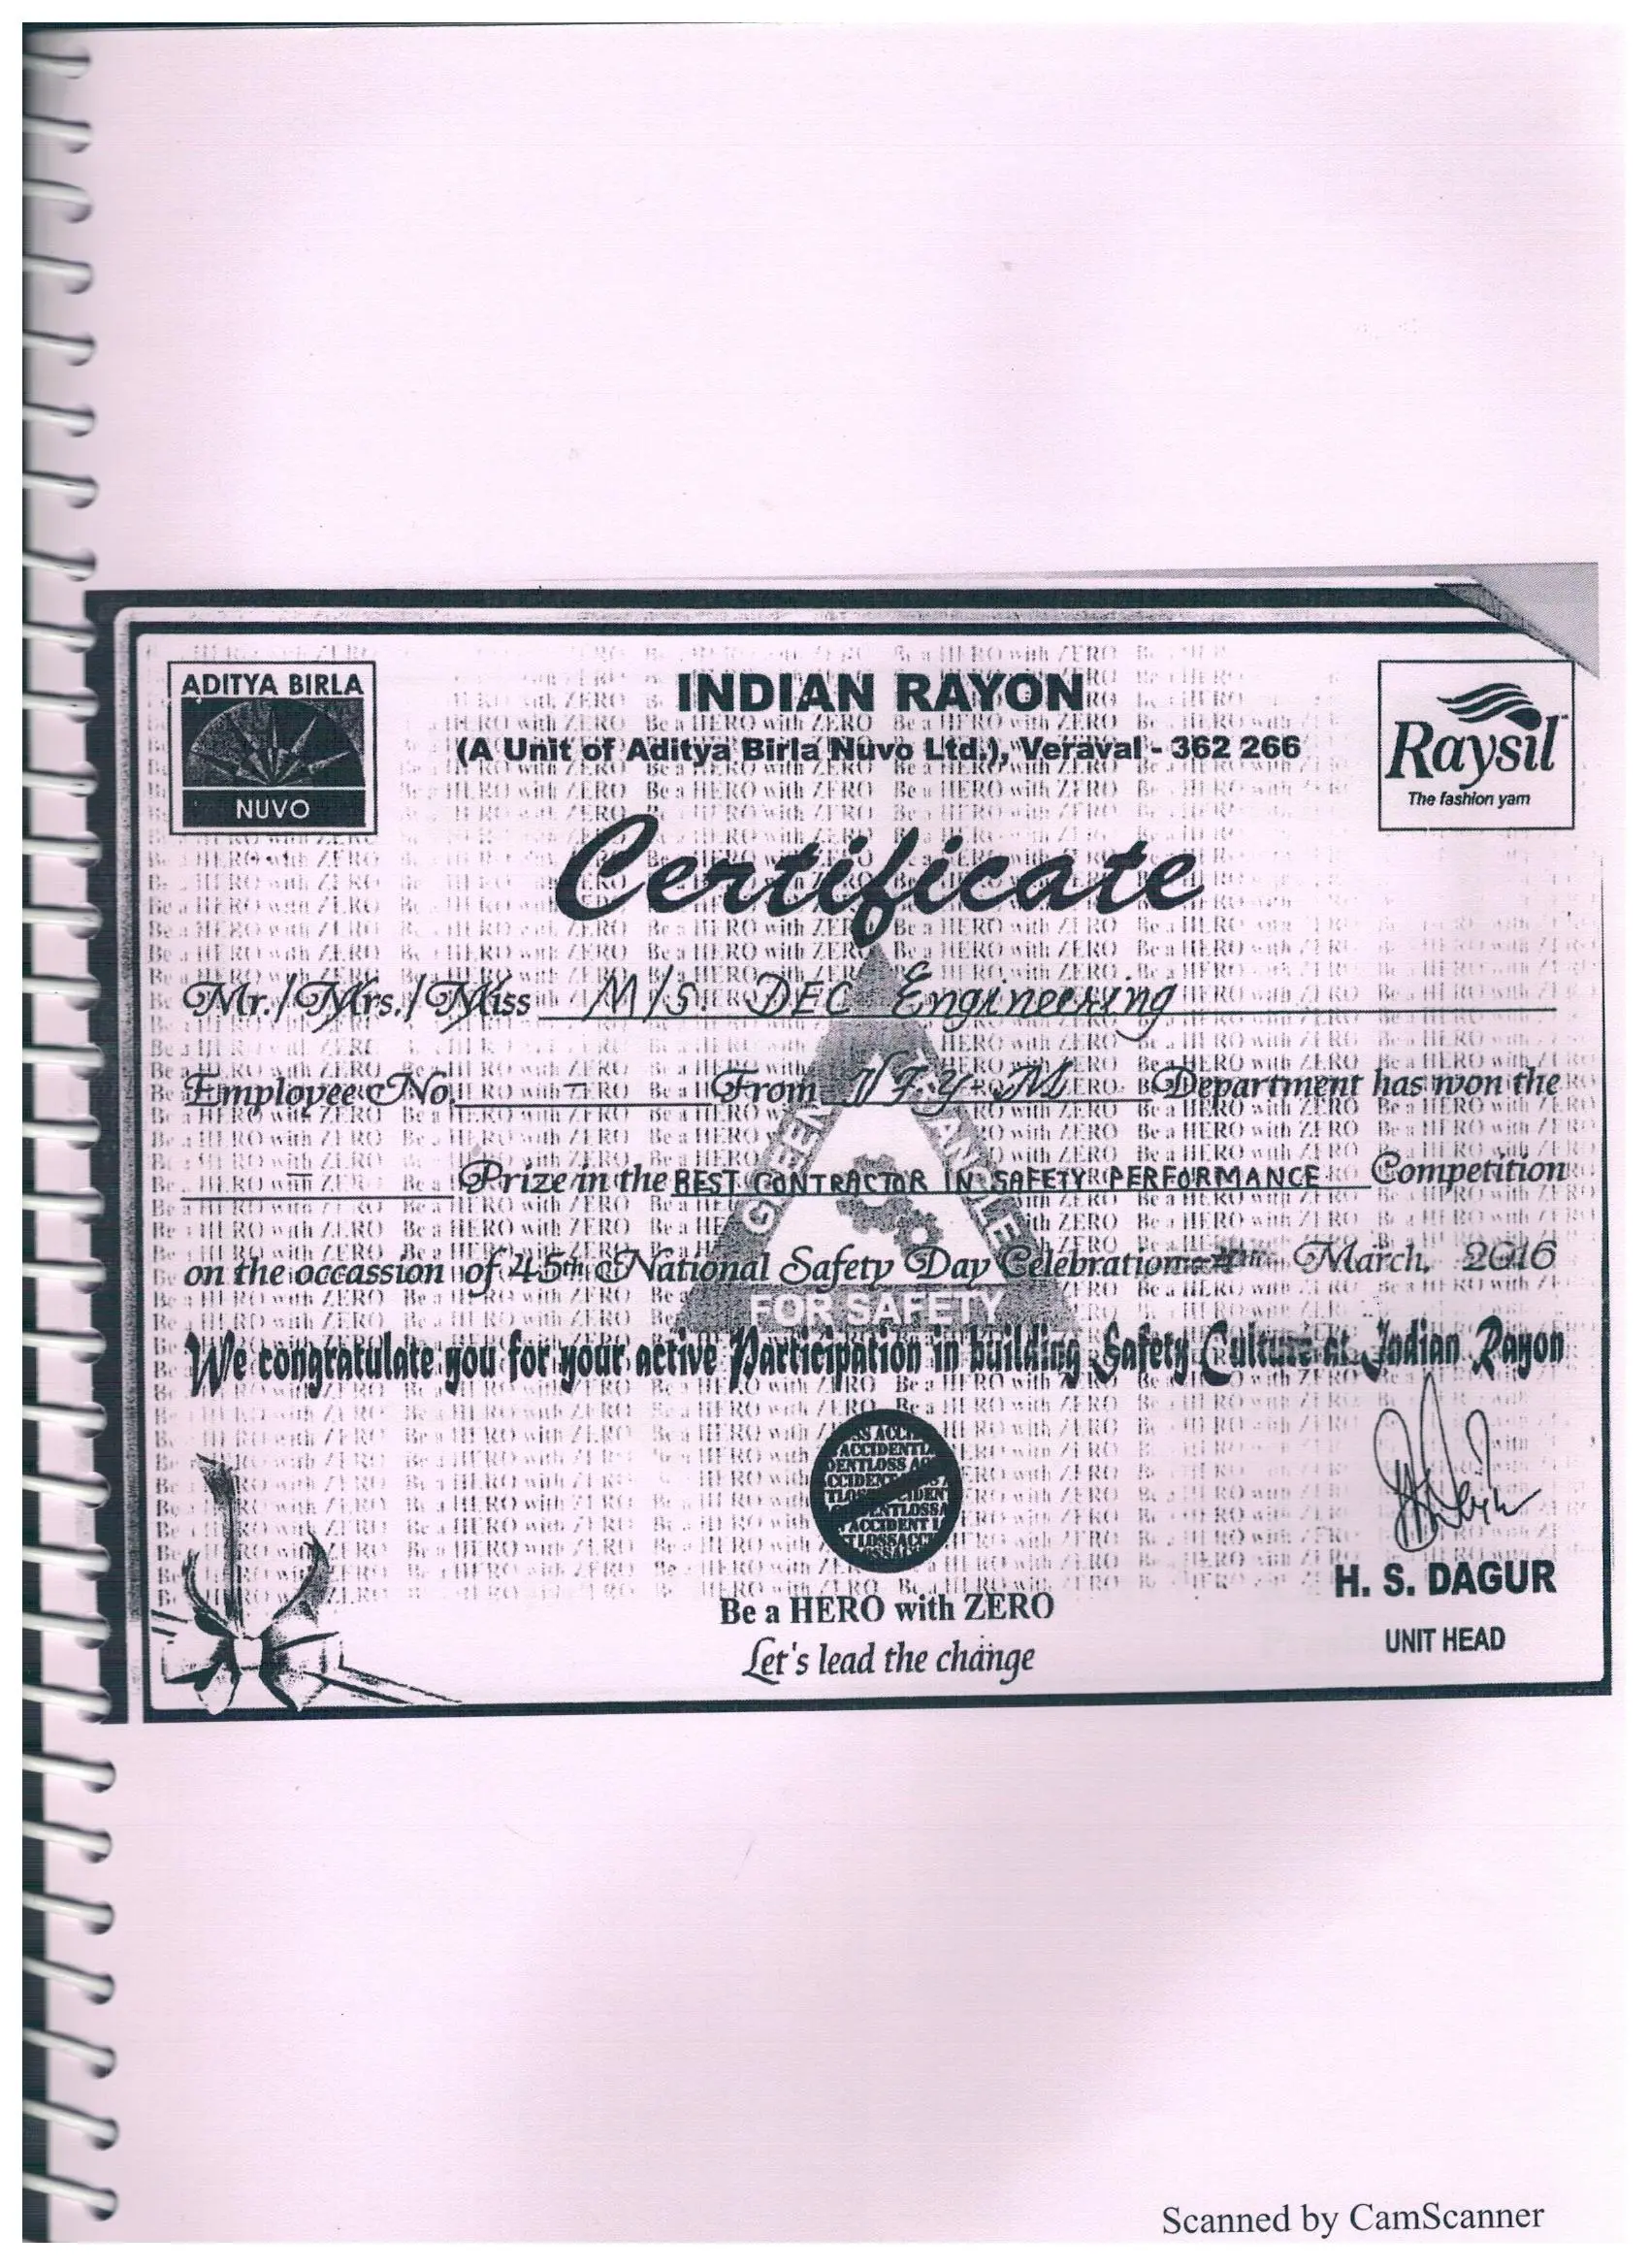 ADITYA BIRLA
NUVO
INDIAN RAYON
(A Unit of Aditya Birla Nuvo Ltd.), Veraval - 362 266
Raysil
The fashion yarn
Certificate
Mr./Mrs./Miss M/S. DEC Engineering
Employee No. - From Department has won the
Prize in the BEST CONTRACTOR IN SAFETY PERFORMANCE Competition
on the occassion of 45th National Safety Day Celebration - 4th March, 2016
GREEN TRIANGLE
FOR SAFETY
We congratulate you for your active Participation in building Safety Culture at Indian Rayon
Be a HERO with ZERO
Let's lead the change
H. S. DAGUR
UNIT HEAD
Scanned by CamScanner